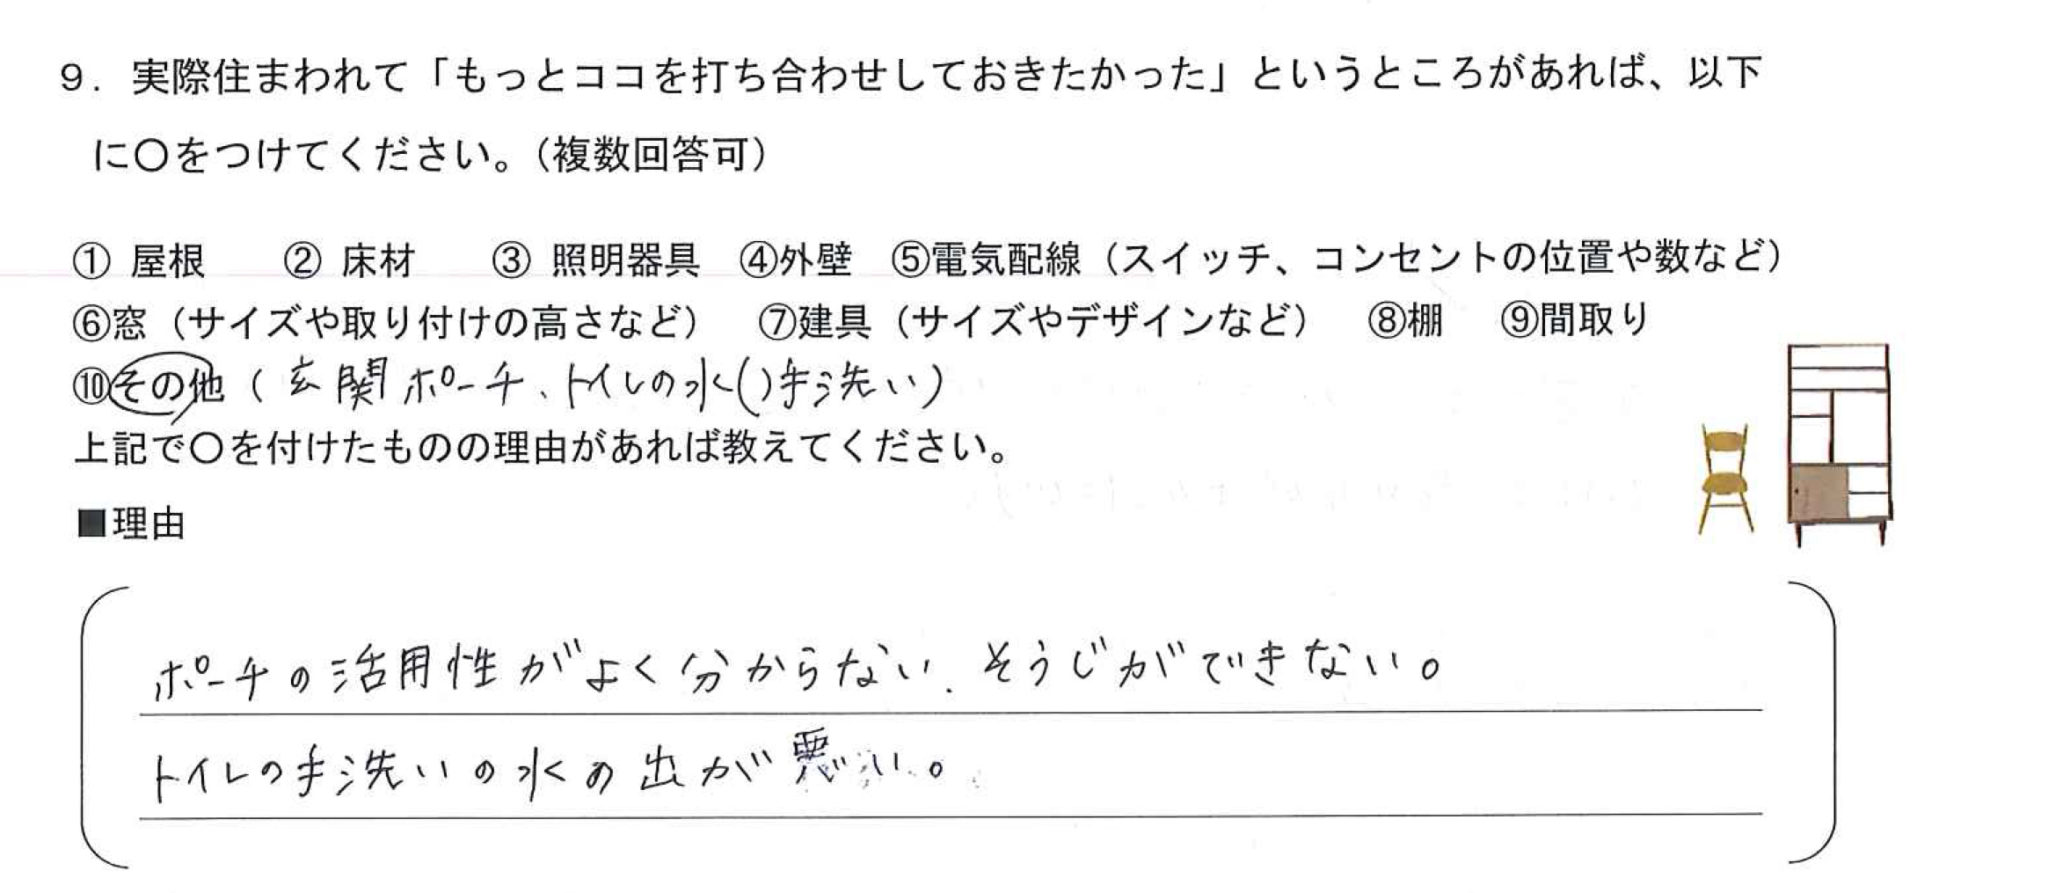 ９．実際住まわれて「もっとココを打ち合わせしておきたかった」というところがあれば、以下
に〇をつけてください。（複数回答可）
① 屋根　② 床材　③ 照明器具　④外壁　⑤電気配線（スイッチ、コンセントの位置や数など）
⑥窓（サイズや取り付けの高さなど）　⑦建具（サイズやデザインなど）　⑧棚　⑨間取り
⑩その他（玄関ポーチ、トイレの水()手洗い）
上記で〇を付けたものの理由があれば教えてください。
■理由
ポーチの活用性がよく分からない、そうじができない。
トイレの手洗いの水の出が悪い。